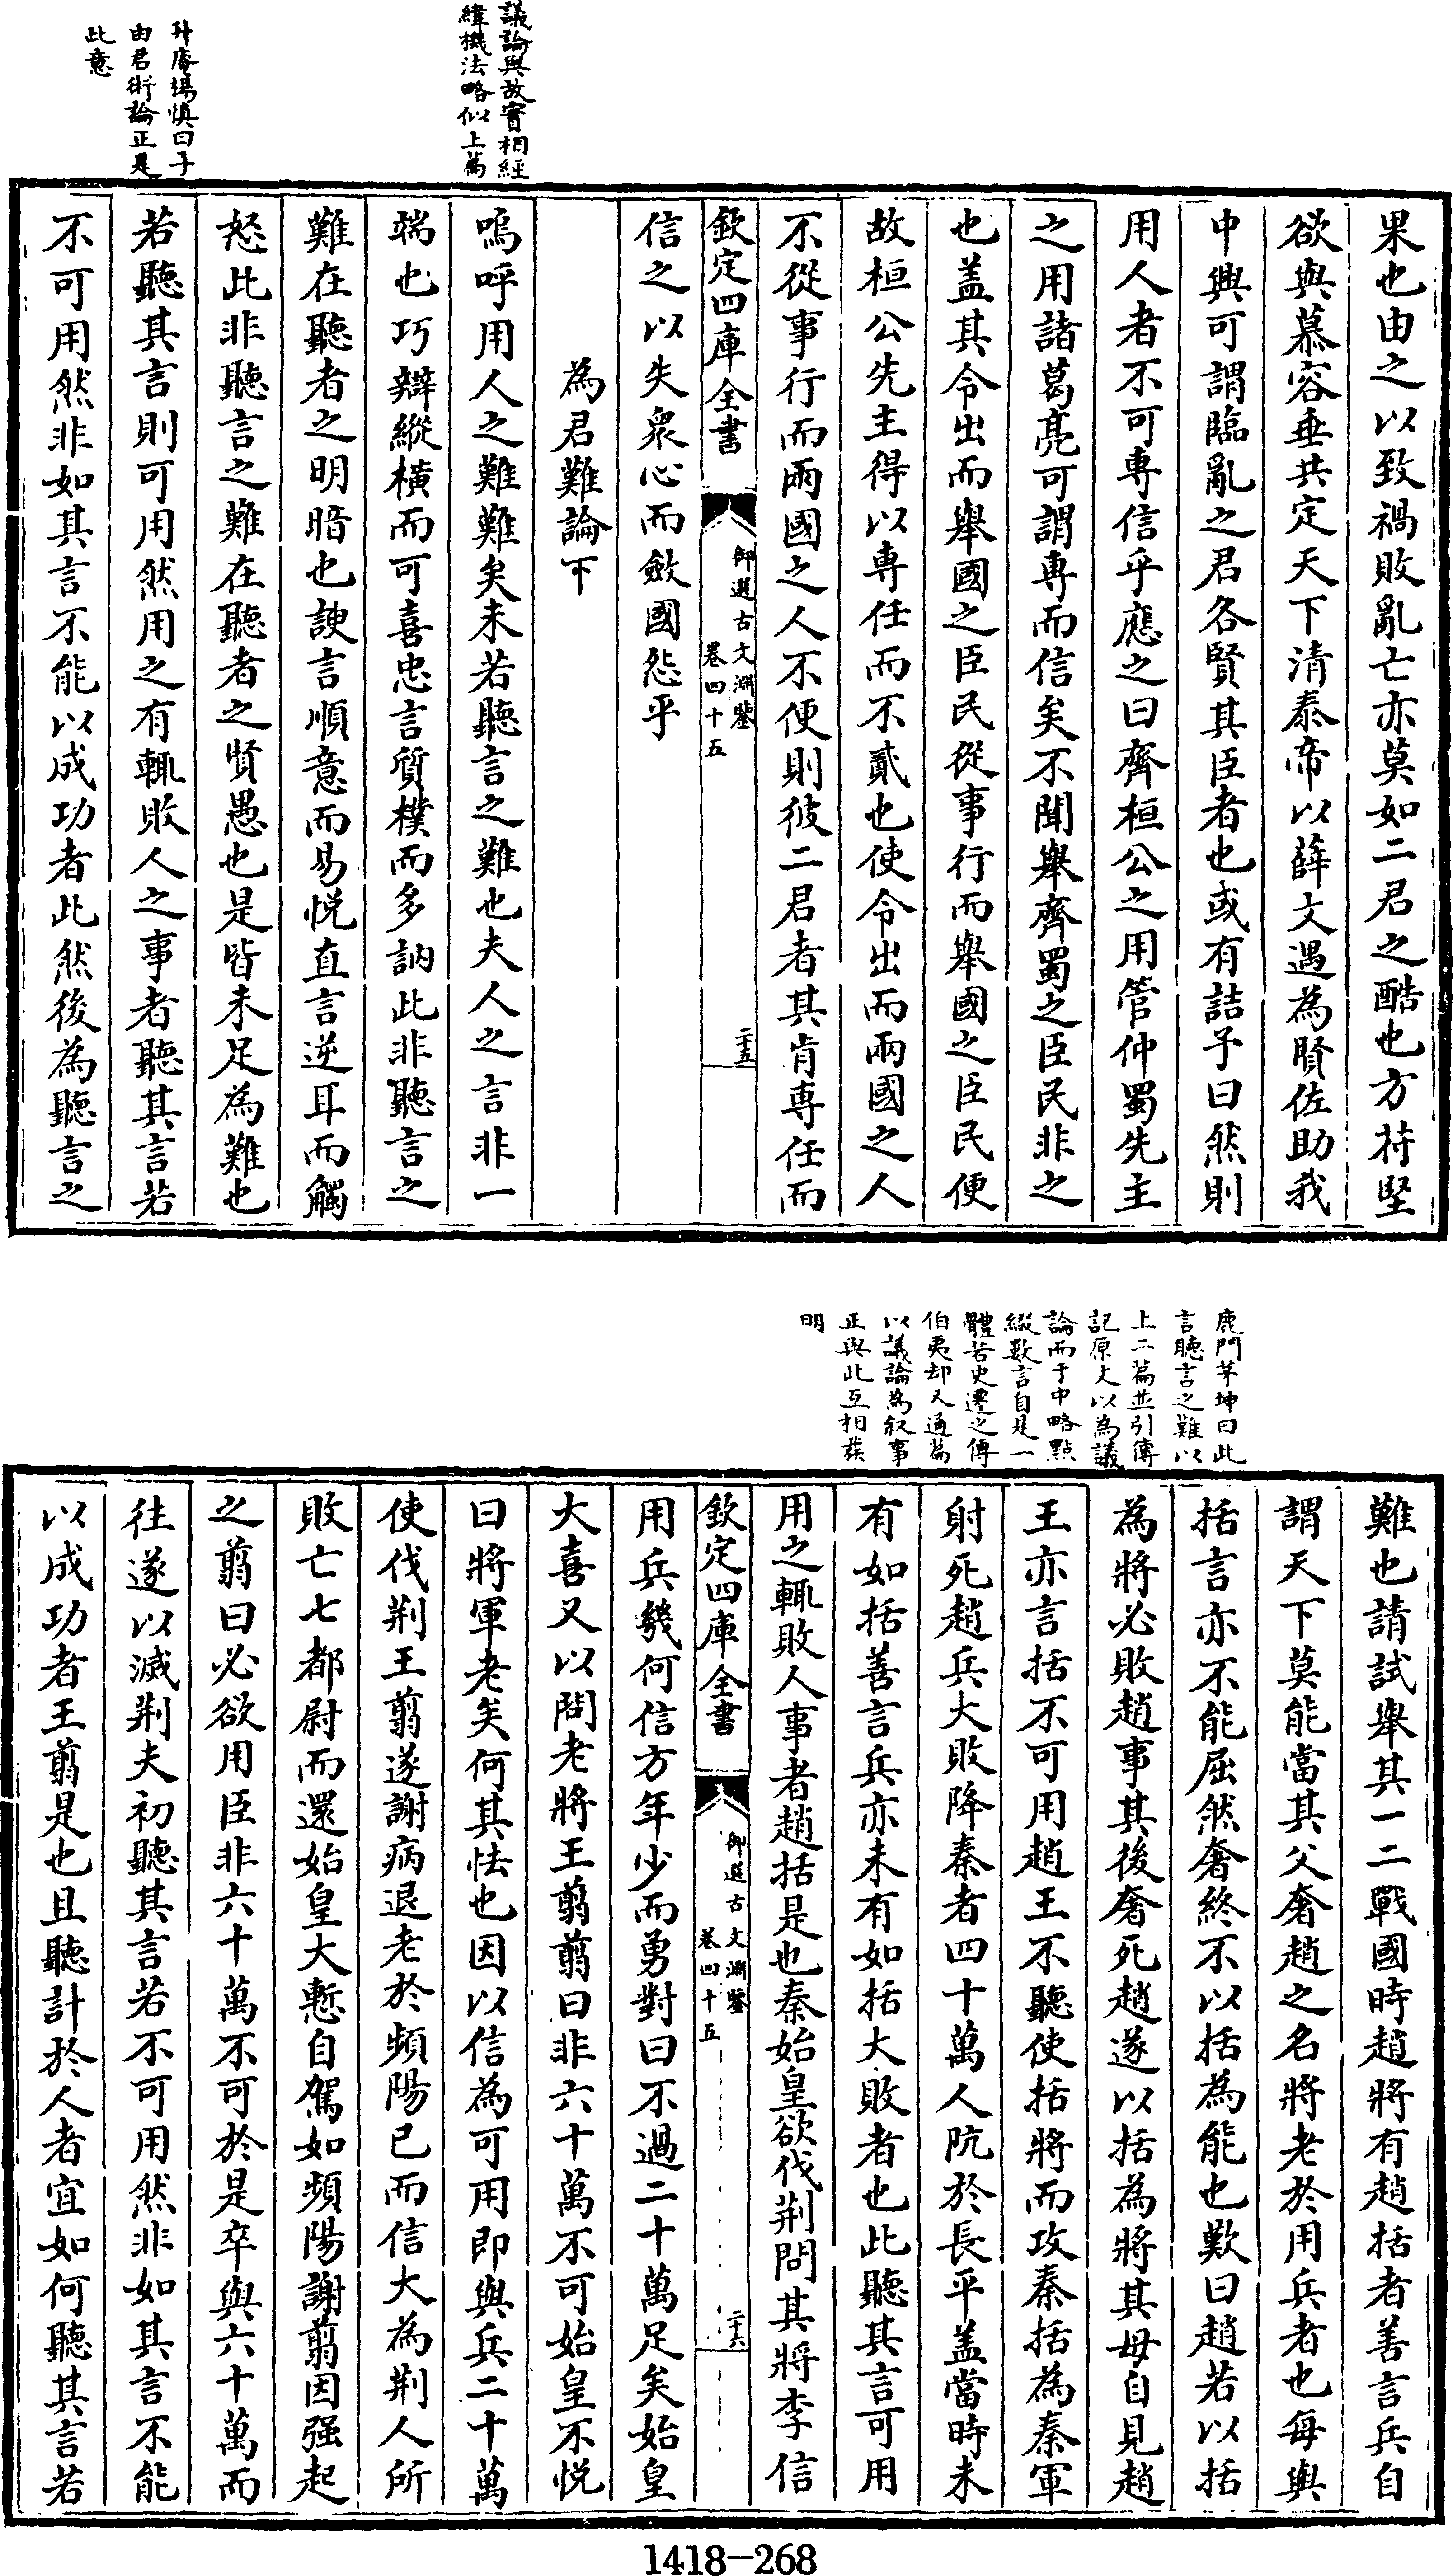 議論與故實相經
緯機法略似上篇
升庵楊慎曰子
由君術論正是
此意
果也由之以致禍敗亂亡亦莫如二君之酷也方苻堅
欲與慕容垂共定天下清泰帝以薛文遇為賢佐助我
中興可謂臨亂之君各賢其臣者也或有詰予曰然則
用人者不可専信乎應之曰齊桓公之用管仲蜀先主
之用諸葛亮可謂専而信矣不聞舉齊蜀之臣民非之
也盖其令出而舉國之臣民從事行而舉國之臣民便
故桓公先主得以専任而不貳也使令出而兩國之人
不從事行而兩國之人不便則彼二君者其肯専任而
欽定四庫全書
御選古文淵鑒
卷四十五
二十五
信之以失衆心而斂國怨乎
為君難論下
嗚呼用人之難難矣未若聽言之難也夫人之言非一
端也巧辯縱橫而可喜忠言質樸而多訥此非聽言之
難在聽者之明暗也諛言順意而易悅直言逆耳而觸
怒此非聽言之難在聽者之賢愚也是皆未足為難也
若聽其言則可用然用之有輒敗人之事者聽其言若
不可用然非如其言不能以成功者此然後為聽言之
鹿門茅坤曰此
言聽言之難以
上二篇並引傳
記原文以為議
論而于中略點
綴數言自是一
體若史遷之傳
伯夷却又通篇
以議論為叙事
正與此互相發
明
難也請試舉其一二戰國時趙將有趙括者善言兵自
謂天下莫能當其父奢趙之名將老於用兵者也每與
括言亦不能屈然奢終不以括為能也歎曰趙若以括
為將必敗趙事其後奢死趙遂以括為將其母自見趙
王亦言括不可用趙王不聽使括將而攻秦括為秦軍
射死趙兵大敗降秦者四十萬人阬於長平盖當時未
有如括善言兵亦未有如括大敗者也此聽其言可用
用之輒敗人事者趙括是也秦始皇欲伐荆問其將李信
欽定四庫全書
御選古文淵鑒
卷四十五
二十六
用兵幾何信方年少而勇對曰不過二十萬足矣始皇
大喜又以問老將王翦翦曰非六十萬不可始皇不悅
曰將軍老矣何其怯也因以信為可用即與兵二十萬
使伐荆王翦遂謝病退老於頻陽已而信大為荆人所
敗亡七都尉而還始皇大慙自駕如頻陽謝翦因强起
之翦曰必欲用臣非六十萬不可於是卒與六十萬而
往遂以滅荆夫初聽其言若不可用然非如其言不能
以成功者王翦是也且聽計於人者宜如何聽其言若
1418-268